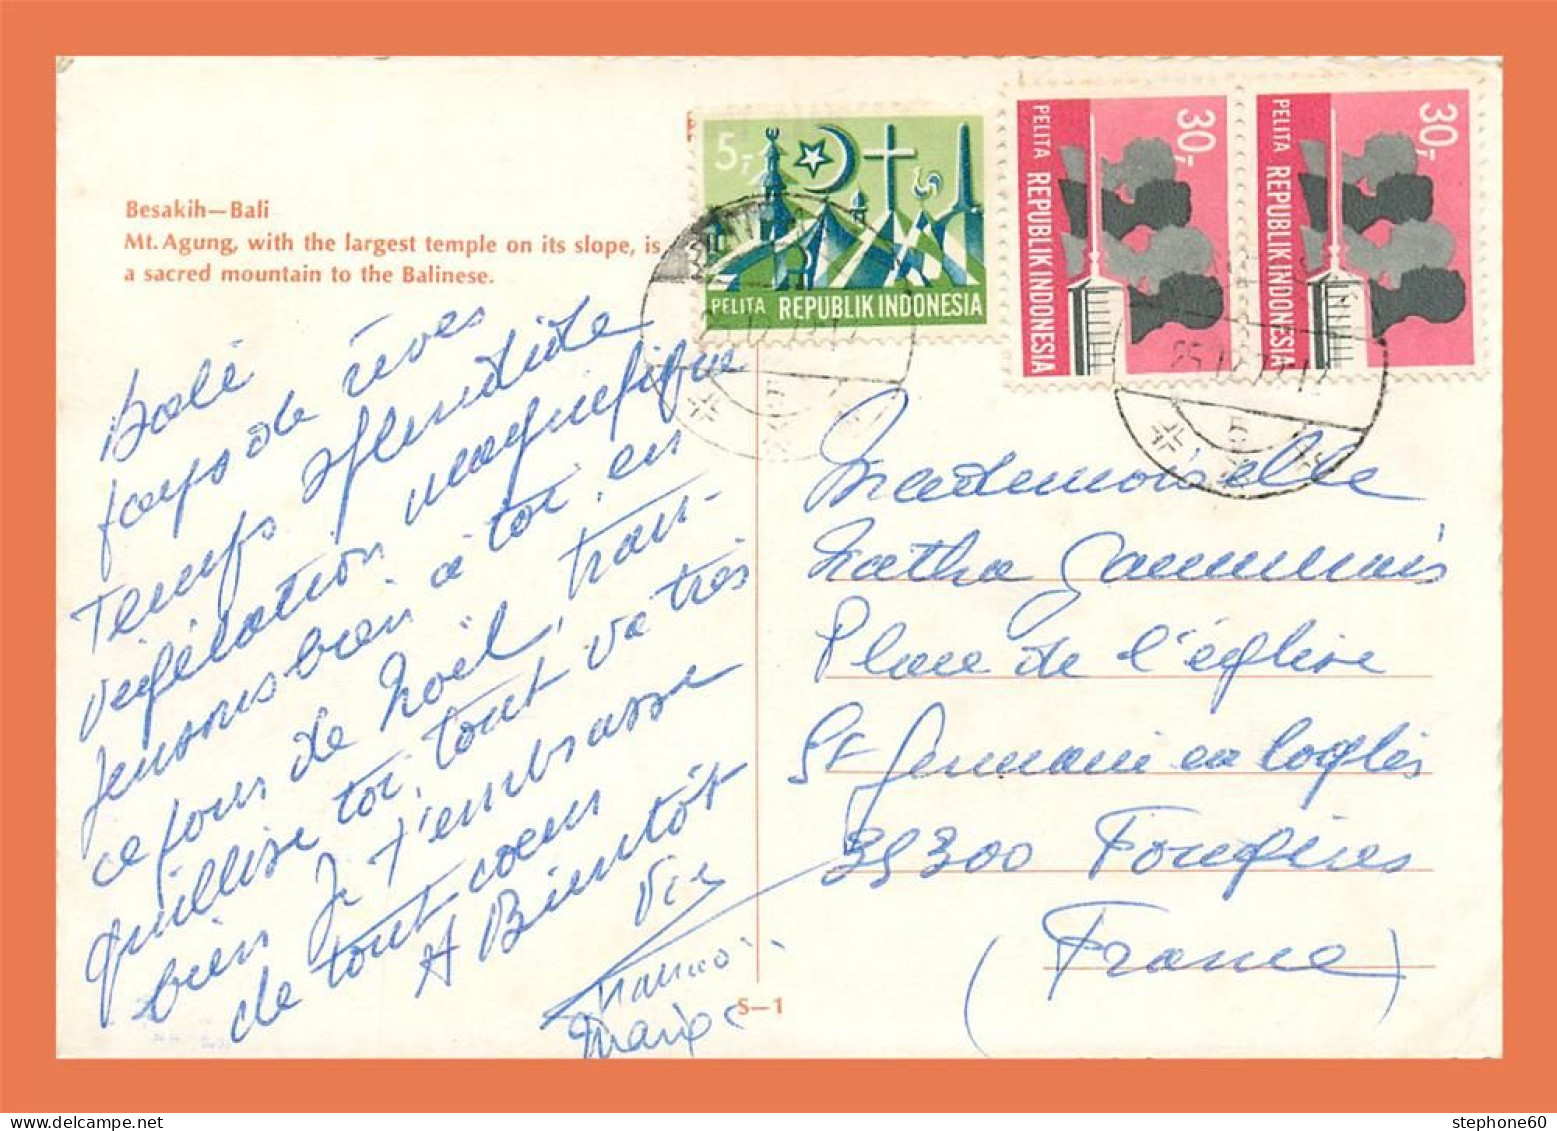 Besakih—Bali
Mt. Agung, with the largest temple on its slope, is
a sacred mountain to the Balinese.
Bali
pays de rêves
Temps splendide
végétation magnifique
pensons bien à toi en
ce jour de Noël, tran-
quillise toi, tout va très
bien Je t'embrasse
de tout coeur
A Bientôt
5,-
PELITA REPUBLIK INDONESIA
PELITA REPUBLIK INDONESIA
30,-
PELITA REPUBLIK INDONESIA
30,-
Mademoiselle
Place de l'église
St Germain en Coglès
35300 Fougères
(France)
S—1
stephone60